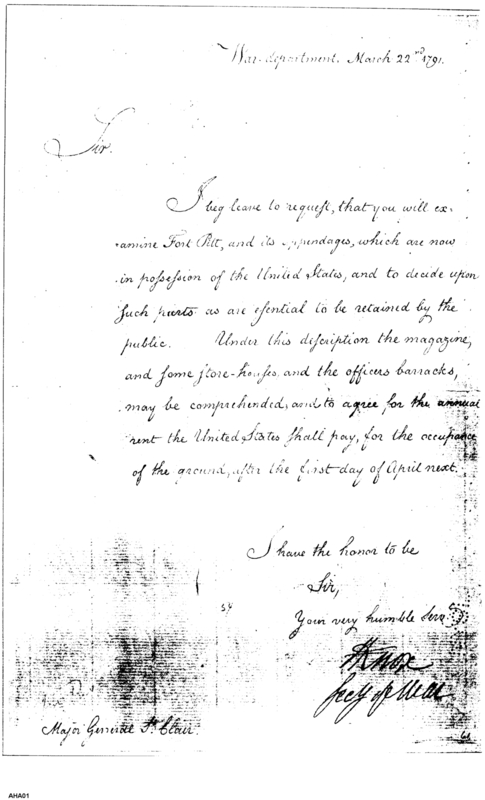 War department. March 22nd 1791.
Sir.
I beg leave to request, that you will ex-
amine Fort Pitt, and its appendages, which are now
in possession of the United States, and to decide upon
such parts as are esential to be retained by the
public. Under this discription the magazine,
and some store-houses and the officers barracks,
may be comprehended, and to agree for the annual
rent the United States shall pay, for the occupance
of the ground, after the first day of April next.
I have the honor to be
Sir,
Your very humble Serv.t
HKnox
Secy of War
54
Major General St. Clair.
61
AHA01